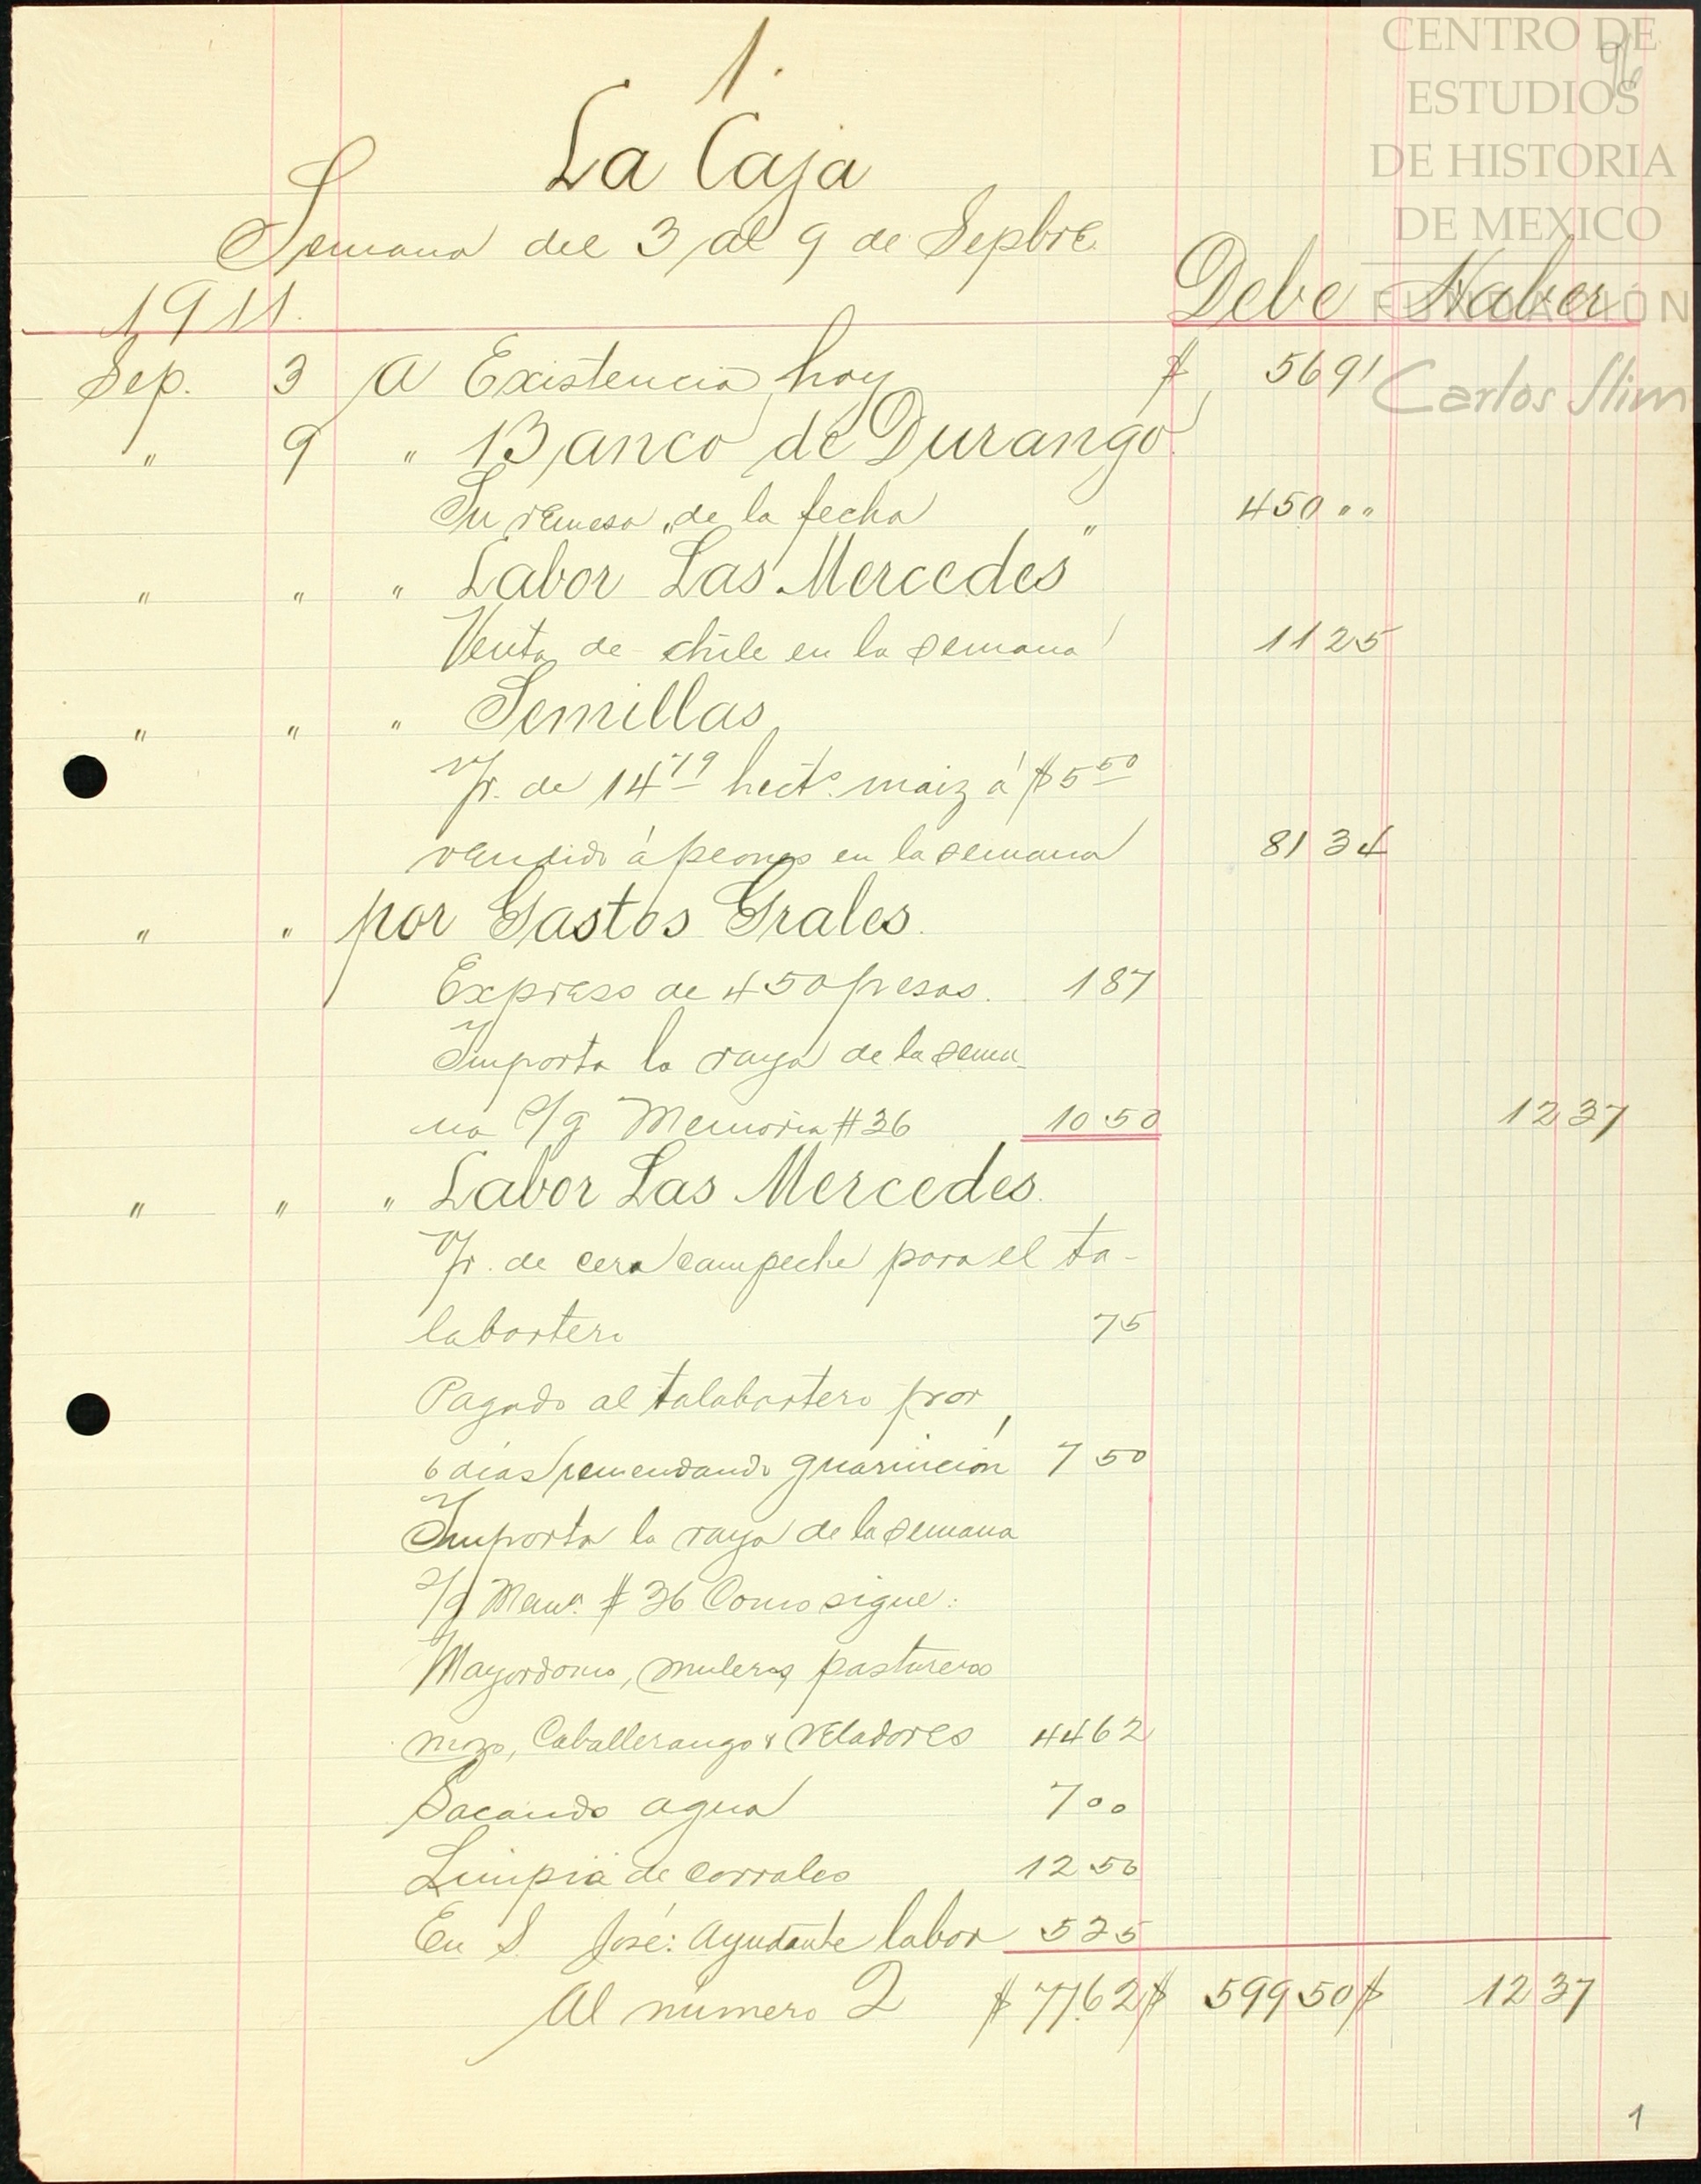 1.
96
La Caja
Semana del 3 al 9 de Sepbre.
1911. Debe Haber
Sep. 3 A Existencia hoy $ 56 91
" 9 " Banco de Durango
Su remesa de la fecha 450 " "
" " " Labor "Las Mercedes"
Venta de chile en la semana 11 25
" " " Semillas
Vr. de 14 79 hects. maiz á $5 50
vendido á peones en la semana 81 34
" " por Gastos Grales.
Expreso de 450 pesos. 1 87
Importa la raya de la sema-
na s/g Memoria #36 10 50 12 37
" " " Labor Las Mercedes.
Vr. de cera campeche para el ta-
labartero 75
Pagado al talabartero por
6 días remendando guarnición 7 50
Importa la raya de la semana
s/g Mema. # 36 Como sigue:
Mayordomo, muleros, pastureros
mozo, Caballerango y Veladores 44 62
Sacando agua 7 00
Limpia de corrales 12 50
En S. José: Ayudante labor 5 25
Al número 2 $ 77 62 $ 599 50 $ 12 37
1
CENTRO DE
ESTUDIOS
DE HISTORIA
DE MEXICO
FUNDACIÓN
Carlos Slim